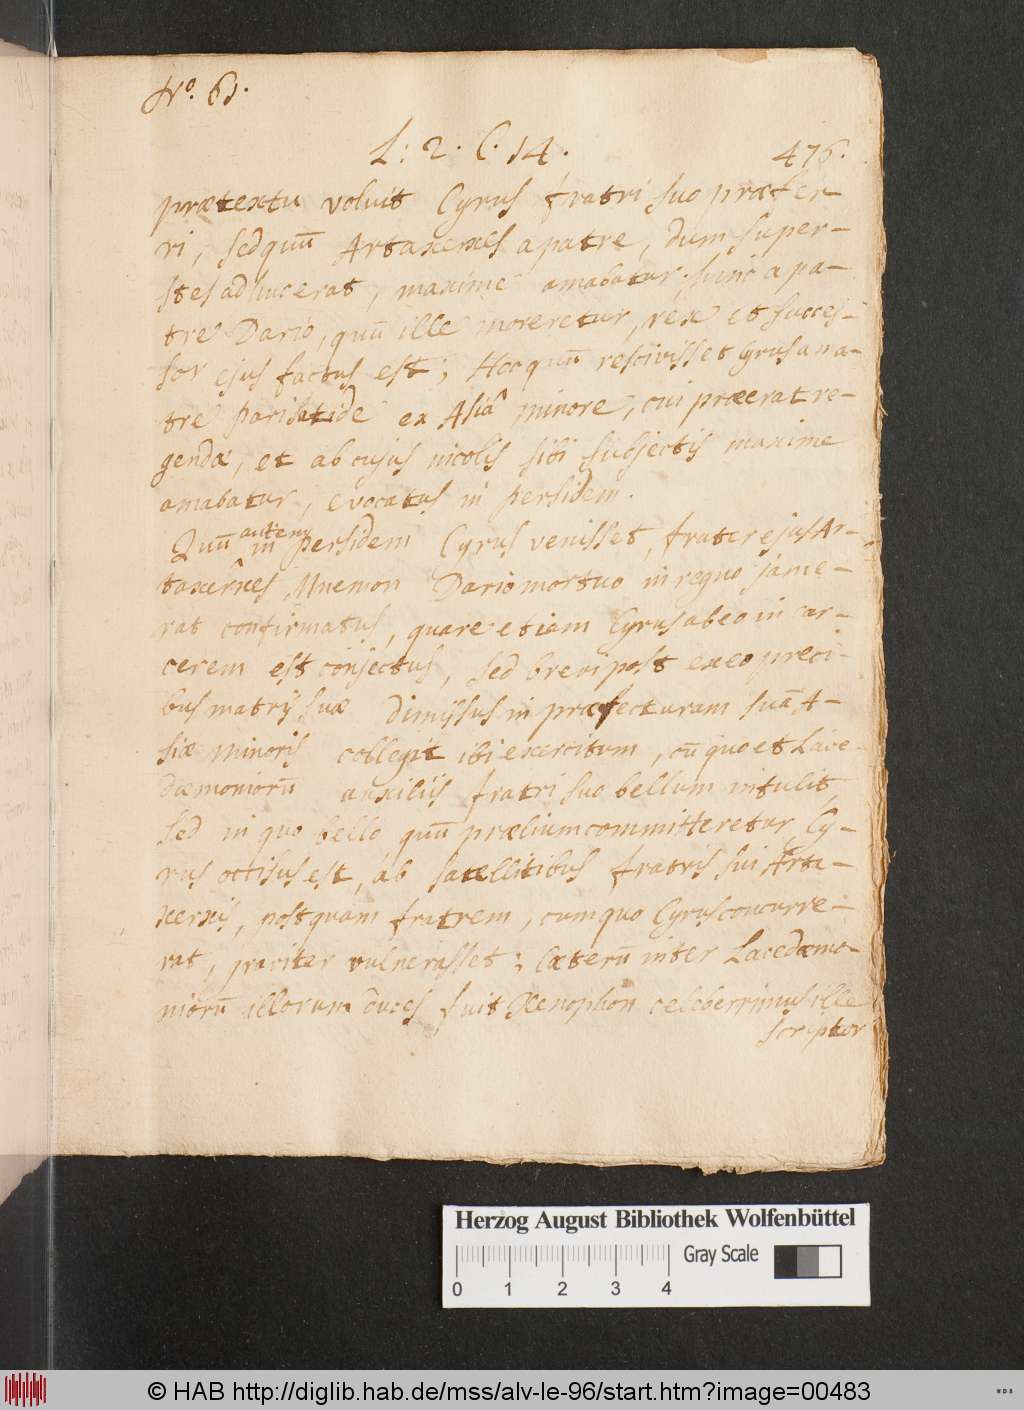 Nro. 61.
L: 2. C. 14. 476.
prætextu voluit Cyrus fratri suo præfer-
ri, sed quū Artaxerxes a patre, dum super-
stes adhuc erat, maxime amabatur, hinc a pa-
tre Dario, quū ille moreretur, rex et succes-
sor ejus factus est; Hoc quū rescivisset Cyrus a ma-
tre Parisatide ex Asiâ minore, cui præerat re-
gendæ, et ab cujus incolis sibi subjectis maxime
amabatur, evocatus in Persidem.
Quū autem in Persidem Cyrus venisset, frater ejus Ar-
taxerxes Mnemon Dario mortuo in regno jam e-
rat confirmatus, quare etiam Cyrus ab eo in car-
cerem est conjectus, sed brevi post ex eo preci-
bus matris suæ dimissus in præfecturam suā A-
siæ minoris collegit ibi exercitum, cū quo et Lace-
dæmoniorū auxiliis fratri suo bellum intulit,
sed in quo bello quū prælium committeretur, Cy-
rus occisus est, ab satellitibus fratris sui Arta-
xerxis, postquam fratrem, cum quo Cyrus concurre-
rat, pariter vulnerasset; Cæterū inter Lacedæmo-
niorū illorum duces fuit Xenophon celeberrimus ille
scriptor
Herzog August Bibliothek Wolfenbüttel
0 1 2 3 4 Gray Scale
© HAB http://diglib.hab.de/mss/alv-le-96/start.htm?image=00483